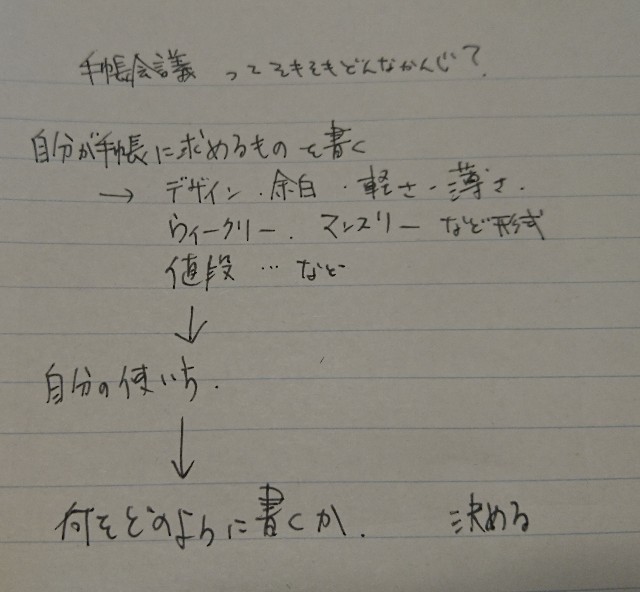 手帳会議 ってそもそもどんなかんじ?
自分が手帳に求めるものを書く
→ デザイン・余白・軽さ・薄さ.
ウィークリー. マンスリー など形式
値段 … など
↓
自分の使い方.
↓
何をどのように書くか. 決める